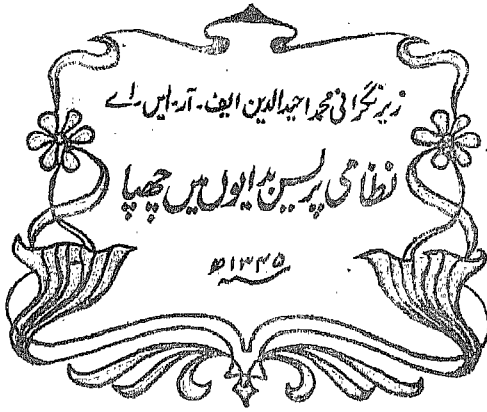 زیر نگرانی محمد احید الدین ایف۔ آر۔ ایس۔ اے
نظامی پریس بدایوں میں چھپا
۱۳۴۵ھ